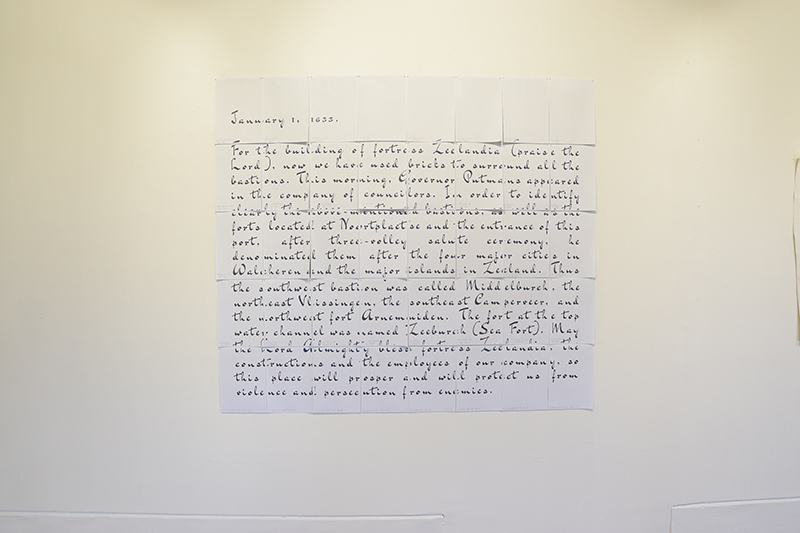 January 1, 1633.
For the building of fortress Zeelandia (praise the
Lord), now we have used bricks to surround all the
bastions. This morning, Governor Putmans appeared
in the company of councilors. In order to identify
clearly the above-mentioned bastions, as well as the
forts located at Noortplaetse and the entrance of this
port, after three-volley salute ceremony, he
denominated them after the four major cities in
Walcheren and the major islands in Zeeland. Thus
the southwest bastion was called Middelburch, the
northeast Vlissingen, the southeast Camperveer, and
the northwest fort Arnemuiden. The fort at the top
water channel was named Zeeburch (Sea Fort). May
the Lord Almighty bless fortress Zeelandia, the
constructions and the employees of our company, so
this place will prosper and will protect us from
violence and persecution from enemies.